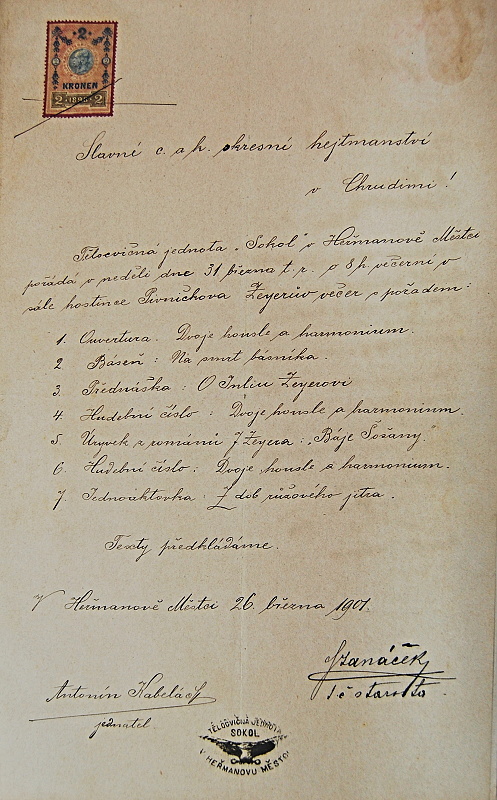 2
KRONEN
2 1898 2
Slavní c. a k. okresní hejtmanství
v Chrudimi!
Tělocvičná jednota „Sokol" v Heřmanově Městci
pořádá v neděli dne 31 března t. r. o 8 h. večerní v
sále hostince Pivničkova Zeyerův večer s pořadem:
1. Ouvertura. Dvoje housle a harmonium.
2 Báseň: Na smrt básníka.
3. Přednáška: O Juliu Zeyerovi
4. Hudební číslo: Dvoje housle a harmonium.
5. Úryvek z románu J Zeyera: „Báje Šošany."
6. Hudební číslo: Dvoje housle a harmonium.
7. Jednoaktovka: Z dob růžového jitra.
Texty předkládáme.
V Heřmanově Městci 26. března 1901.
Antonín Kabeláč
jednatel
starosta
TĚLOCVIČNÁ JEDNOTA
SOKOL
V HEŘMANOVU MĚSTCI